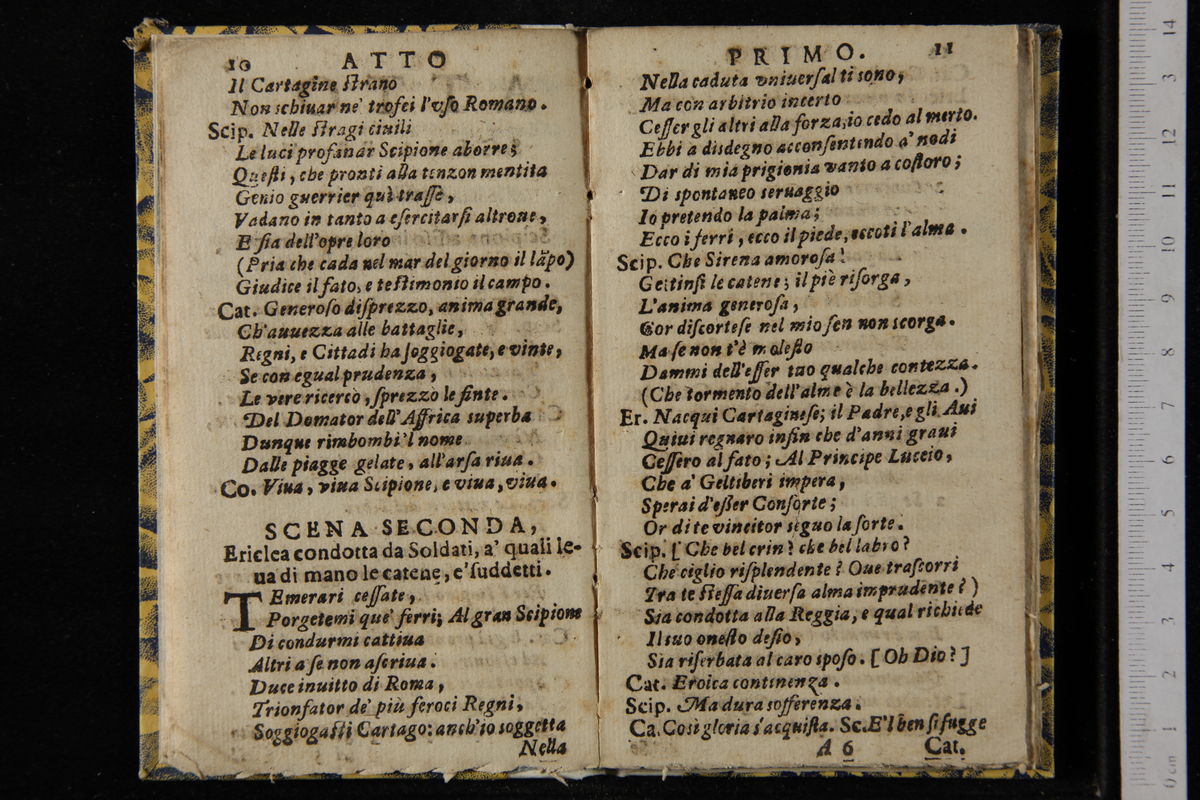 10 ATTO
Il Cartagine ſtrano
Non schiuar ne' trofei l'vſo Romano.
Scip. Nelle ſtragi ciuili
Le luci profanar Scipione aborre;
Queſti, che pronti alla tenzon mentita
Genio guerrier quì traſſe,
Vadano in tanto a eſercitarſi altroue,
E ſia dell'opre loro
(Pria che cada nel mar del giorno il lāpo)
Giudice il fato, e teſtimonio il campo.
Cat. Generoſo diſprezzo, anima grande,
Ch'auuezza alle battaglie,
Regni, e Cittadi ha ſoggiogate, e vinte,
Se con egual prudenza,
Le vere ricercò, ſprezzò le finte.
Del Domator dell'Affrica superba
Dunque rimbombi 'l nome
Dalle piagge gelate, all'arſa riua.
Co. Viua, viua Scipione, e viua, viua.
SCENA SECONDA,
Ericlea condotta da Soldati, a' quali le-
ua di mano le catene, e' ſuddetti.
TEmerari ceſſate,
Porgetemi que' ferri; Al gran Scipione
Di condurmi cattiua
Altri a ſe non aſcriua.
Duce inuitto di Roma,
Trionfator de' più feroci Regni,
Soggiogaſti Cartago: anch'io soggetta
Nella
PRIMO. 11
Nella caduta vniuerſal ti sono,
Ma con arbitrio incerto
Ceſſer gli altri alla forza, io cedo al merto.
Ebbi a disdegno acconſentendo a' nodi
Dar di mia prigionia vanto a coſtoro;
Di spontaneo seruaggio
Io pretendo la palma;
Ecco i ferri, ecco il piede, eccoti l'alma.
Scip. Che Sirena amoroſa!
Gettinſi le catene; il piè riſorga,
L'anima generoſa,
Cor diſcorteſe nel mio ſen non scorga.
Ma ſe non t'è moleſto
Dammi dell'eſſer tuo qualche contezza.
(Che tormento dell'alme è la bellezza.)
Er. Nacqui Cartagineſe; il Padre, e gli Aui
Quiui regnaro infin che d'anni graui
Ceſſero al fato; Al Principe Luceio,
Che a' Celtiberi impera,
Sperai d'eſſer Conſorte;
Or di te vincitor seguo la ſorte.
Scip. [ Che bel crin? che bel labro?
Che ciglio riſplendente? Oue traſcorri
Tra te ſteſſa diuerſa alma imprudente? )
Sia condotta alla Reggia, e qual richiede
Il suo oneſto deſio,
Sia riſerbata al caro spoſo. [ Oh Dio? ]
Cat. Eroica continenza.
Scip. Ma dura sofferenza.
Ca. Così gloria s'acquiſta. Sc. E'l ben ſi fugge
A 6 Cat.
14
3
12
11
10
9
8
7
6
5
4
3
2
1
0 cm